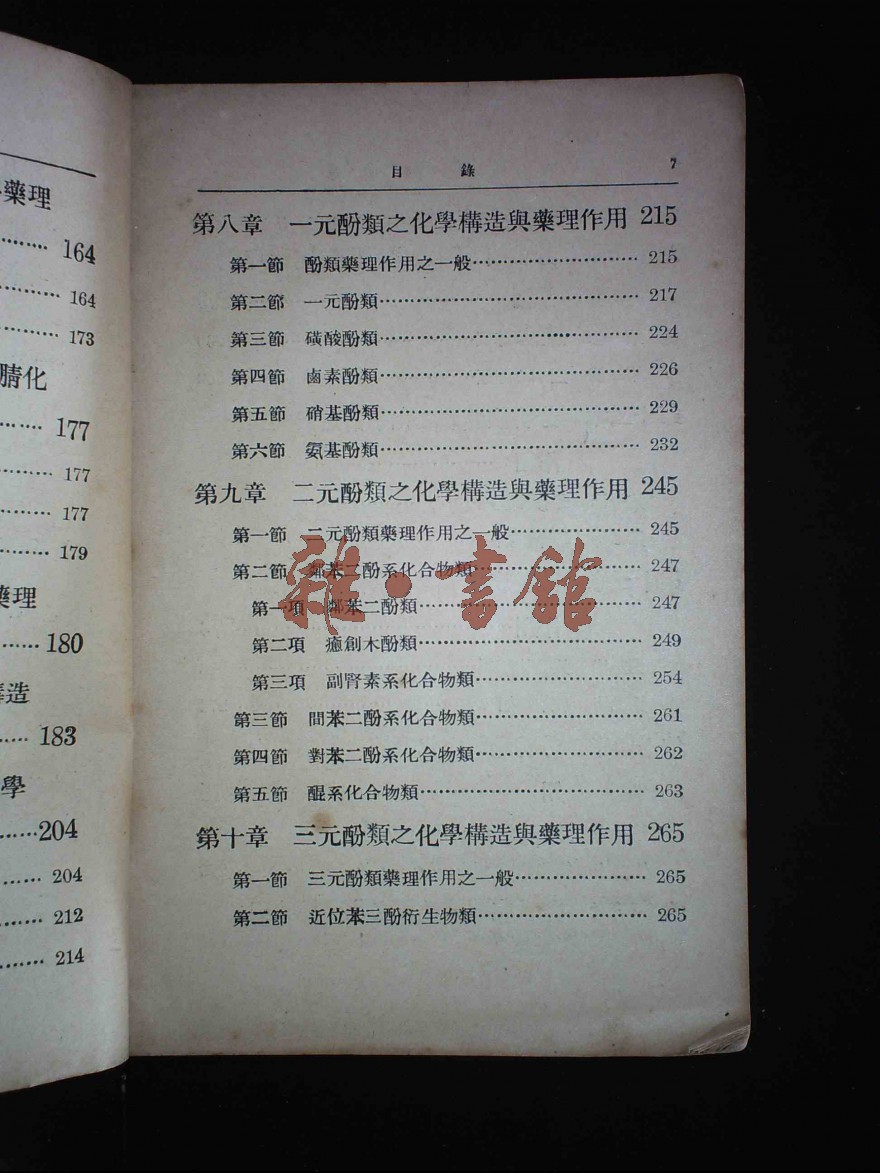 藥理
164
164
173
腈化
177
177
177
179
藥理
180
造
183
學
204
204
212
214
目 錄 7
第八章 一元酚類之化學構造與藥理作用 215
第一節 酚類藥理作用之一般……………………… 215
第二節 一元酚類…………………………………… 217
第三節 磺酸酚類…………………………………… 224
第四節 鹵素酚類…………………………………… 226
第五節 硝基酚類…………………………………… 229
第六節 氨基酚類…………………………………… 232
第九章 二元酚類之化學構造與藥理作用 245
第一節 二元酚類藥理作用之一般………………… 245
第二節 鄰苯二酚系化合物類……………………… 247
第一項 鄰苯二酚類……………………………… 247
第二項 癒創木酚類……………………………… 249
第三項 副腎素系化合物類……………………… 254
第三節 間苯二酚系化合物類……………………… 261
第四節 對苯二酚系化合物類……………………… 262
第五節 醌系化合物類……………………………… 263
第十章 三元酚類之化學構造與藥理作用 265
第一節 三元酚類藥理作用之一般………………… 265
第二節 近位苯三酚衍生物類……………………… 265
雜·書館